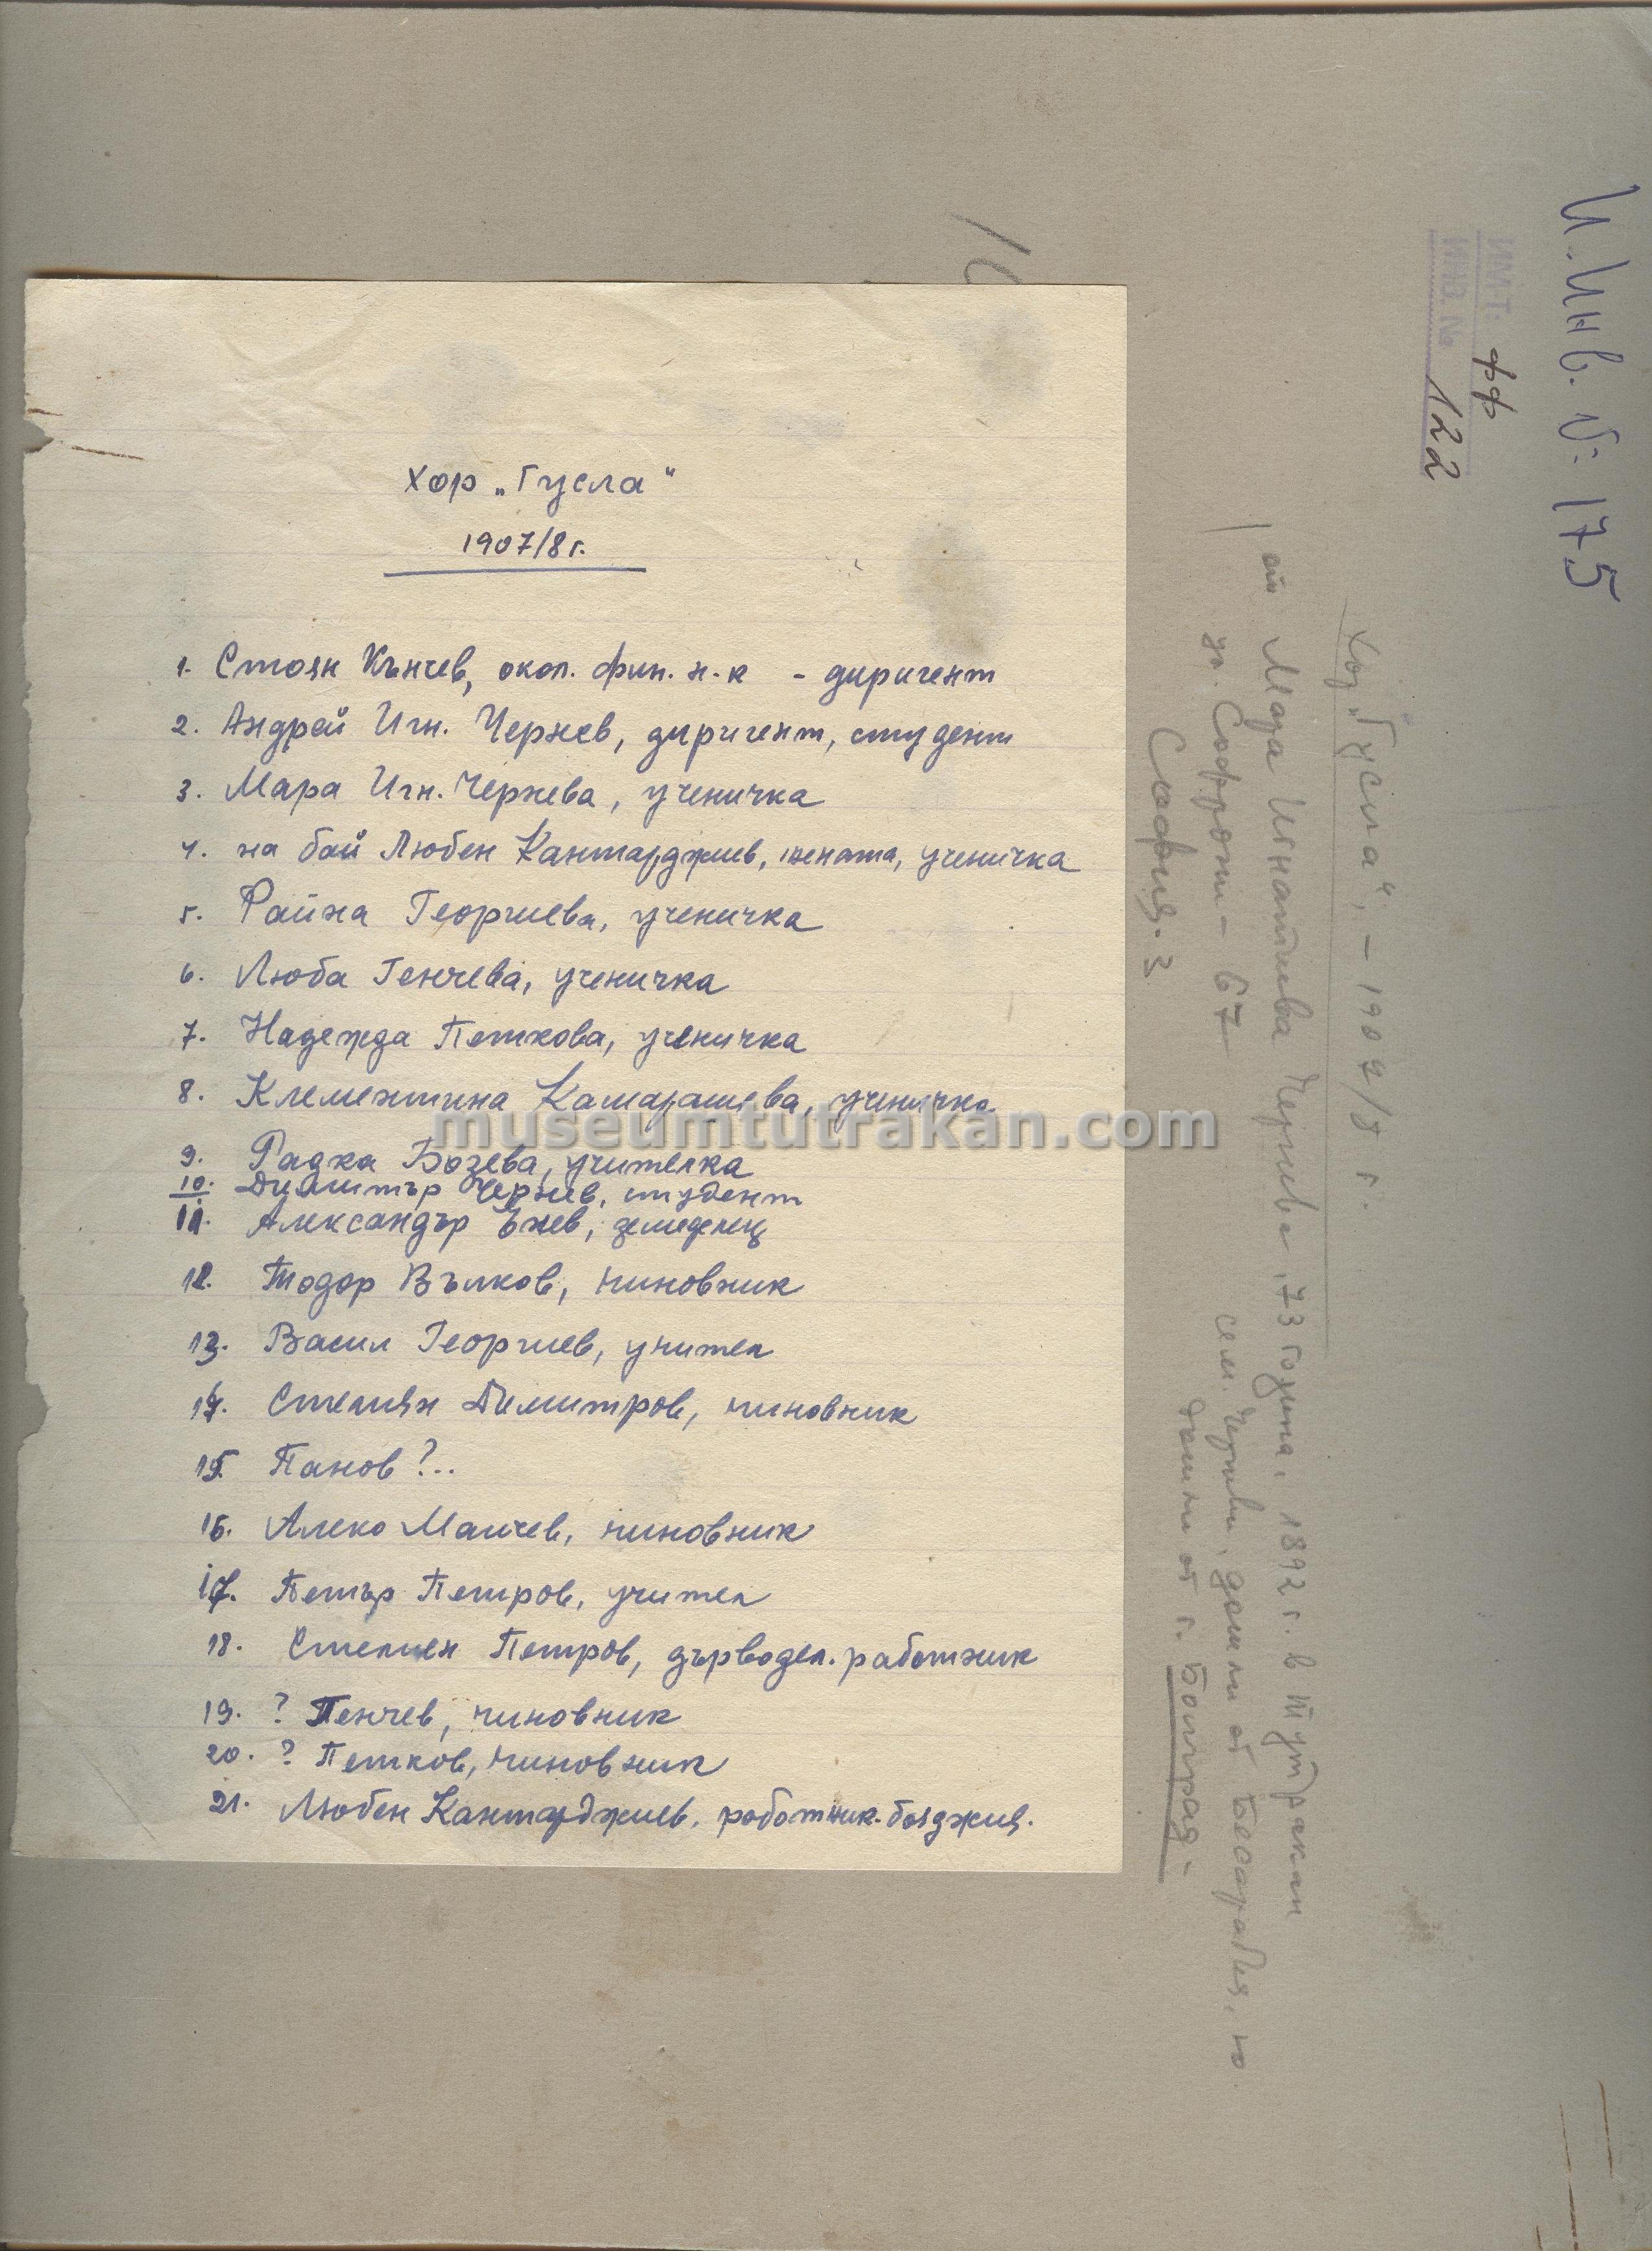 Хор „Гусла“
1907/8 г.
1. Стоян Кънчев, окол. фин. н-к - диригент
2. Андрей Игн. Чернев, диригент, студент
3. Мара Игн. Чернева, ученичка
4. на бай Любен Кантарджиев, жената, ученичка
5. Райна Георгиева, ученичка
6. Люба Генчева, ученичка
7. Надежда Петкова, ученичка
8. Клементина Камарашева, ученичка
9. Радка Бозева, учителка
10. Димитър Чернев, студент
11. Александър Ънев, земеделец
12. Тодор Вълков, чиновник
13. Васил Георгиев, учител
14. Стелиян Димитров, чиновник
15. Панов ?..
16. Алеко Манчев, чиновник
17. Петър Петров, учител
18. Стелиен Петров, дърводел. работник
19. ? Пенчев, чиновник
20. ? Петков, чиновник
21. Любен Кантарджиев, работник-бояджия.
museumtutrakan.com
И.Инв. №: 175
ИМТ. ФФ
ИНВ. № 122
Хор „Гусла“, – 1907/8 г.
от Мара Игнатиева Чернева, 73 годишна, 1892 г. в Тутракан
ул. Софроний – 67
сем. Черневи, дошли от Бесарабия, ю.
София. 3
от г. Болград –
10